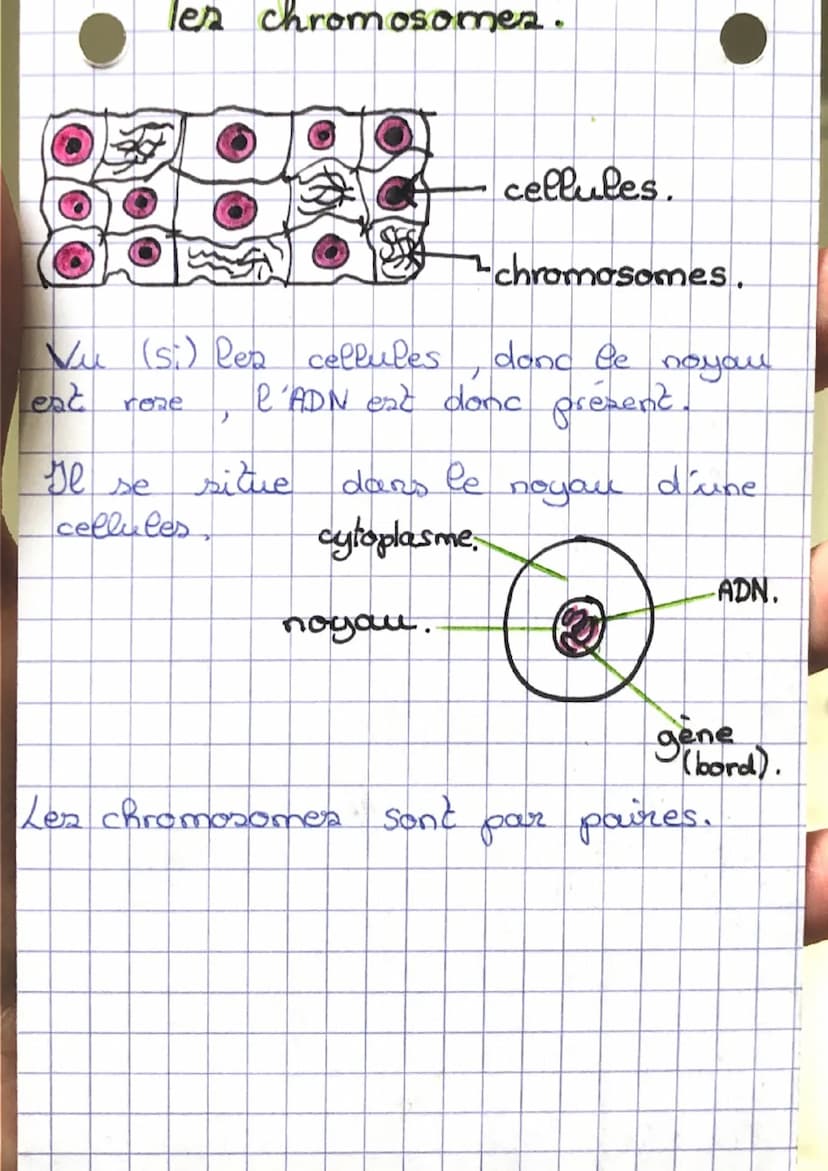 les chromosomes.
cellules.
chromosomes.
Vu (si) les cellules, donc le noyau
est rose, l'ADN est donc présent.
Il se situe dans le noyau d'une
cellules.
cytoplasme.
ADN.
noyau.
gène
(bord).
Les chromosomes sont par paires.